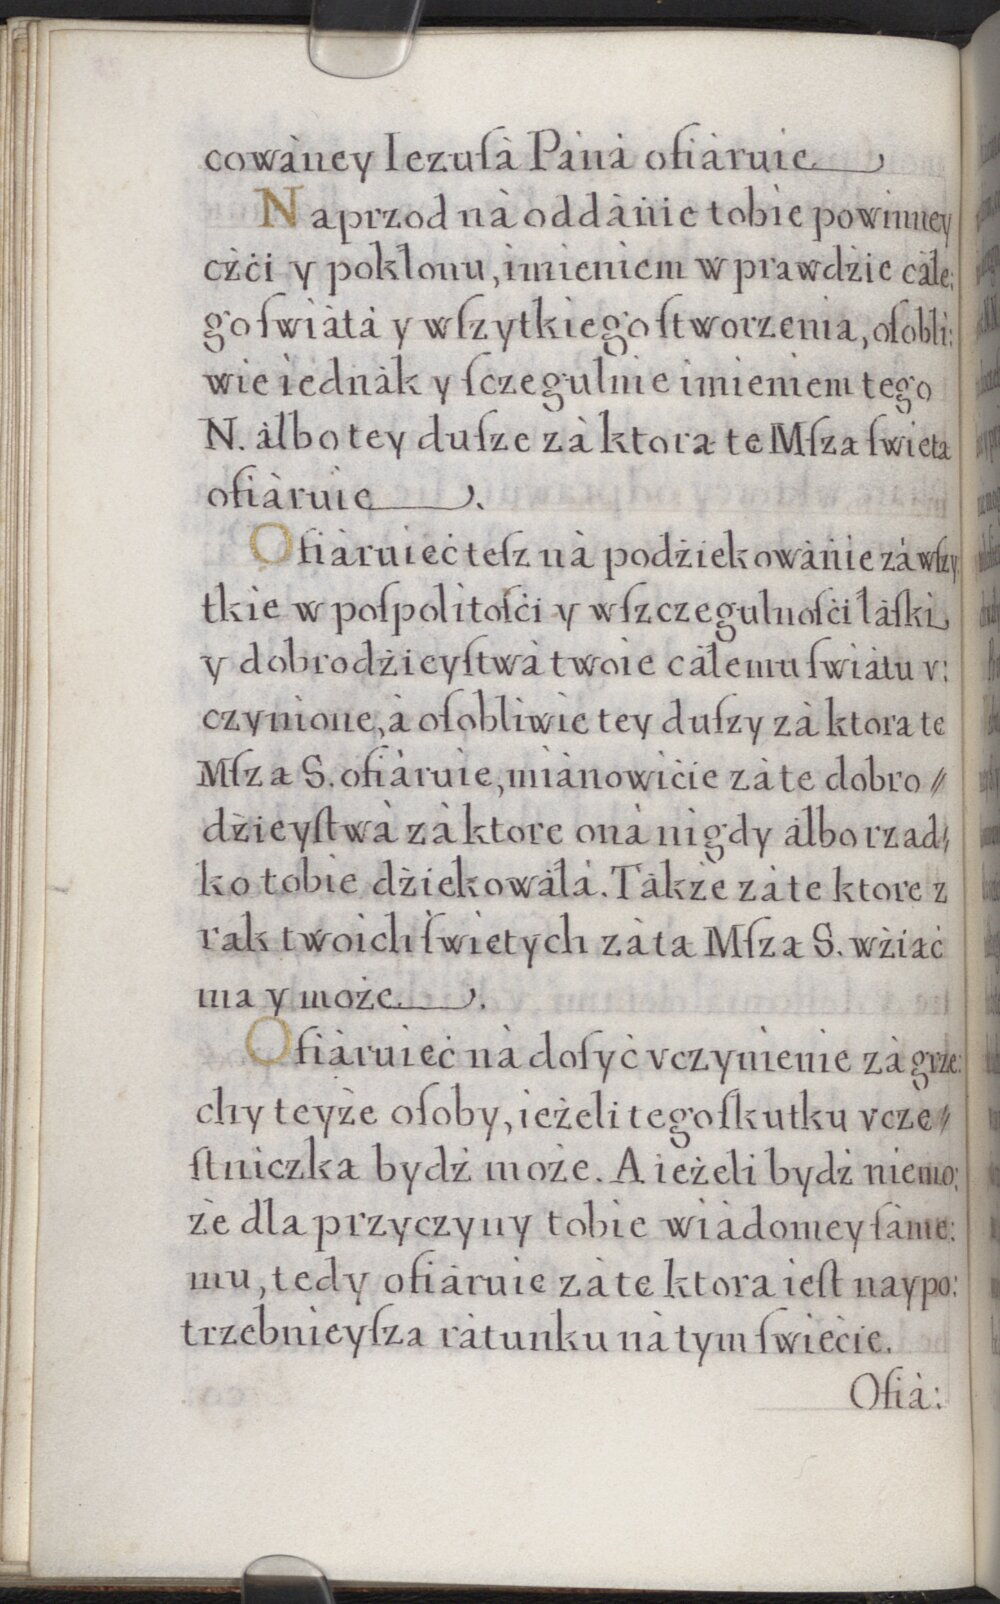 cowàney Iezuſà Pànà ofiàruie
Naprzod nà oddànie tobie powinney
cżći y pokłonu, imieniem w prawdżie càłe:
go ſwiàtà y wſzytkiego ſtworzenia, oſobli:
wie iednàk y ſczegulnie imieniem tego
N. àlbo tey duſze zà ktora te Mſza ſwieta
ofiàruie.
Ofiàruieć teſz nà podżiekowànie zà wſzy
tkie w poſpolitoſći y w ſzczegulnoſći łàſki
y dobrodżieyſtwà twoie càłemu ſwiàtu v:
czynione, à oſobliwie tey duſzy zà ktora te
Mſza S. ofiàruie, miànowićie zà te dobro //
dżieyſtwà zà ktore onà nigdy àlbo rzad//
ko tobie dżiekowàłà. Tàkże zà te ktore z
rak twoich ſwietych zà ta Mſza S. wżiać
ma y może.
Ofiàruieć nà doſyć vczynienie zà grze:
chy teyże oſoby, ieżeli tego ſkutku vcze//
ſtniczka bydż może. A ieżeli bydż niemo:
że dla przyczyny tobie wiàdomey ſàme:
mu, tedy ofiàruie zà te ktora ieſt naypo:
trzebnieyſza ràtunku nà tym ſwiećie.
Ofià: